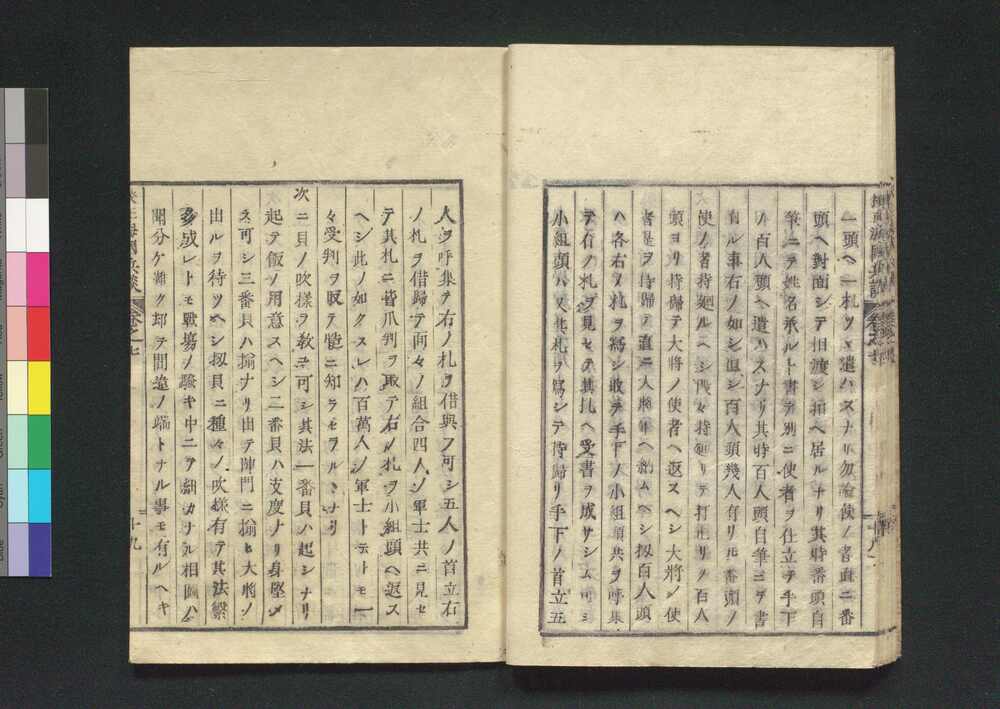 一頭ヘ一札ツヽ遣ハスナリ勿論使ノ者直ニ番
頭ヘ對面シテ相渡シ扣ヘ居ルナリ其時番頭自
筆ニテ姓名承ルト書テ別ニ使者ヲ仕立テ手下
ノ百人頭ヘ遣ハスナリ其時百人頭自筆ニテ書
ル事右ノ如シ但シ百人頭幾人有リトモ番頭ノ
使ノ者持廻ルヘシ段々持廻リテ打止リノ百人
頭ヨリ持歸テ大將ノ使者ヘ返スヘシ大將ノ使
者是ヲ持歸テ直ニ大將軍ヘ納ムヘシ扨百人頭
ハ各右ノ札ヲ寫シ收テ手下ノ小組頭共ヲ呼集
テ右ノ札ヲ見セテ其札ヘ受書ヲ成サシム可シ
小組頭ハ又其札ヲ寫シテ持歸リ手下ノ首立五
人ヲ呼集テ右ノ札ヲ借與フ可シ五人ノ首立右
ノ札ヲ借歸テ面々ノ組合四人ノ軍士共ニ見セ
テ其札ニ皆爪判ヲ取テ右ノ札ヲ小組頭ヘ返ス
ヘシ此ノ如クスレハ百萬人ノ軍士トテトモ一
々受判ヲ取テ慥ニ知ラセラルヽナリ
次ニ貝ノ吹樣ヲ教ユ可シ其法一番貝ハ起シナリ
起テ飯ノ用意スヘシ二番貝ハ支度ナリ身堅メ
ス可シ三番貝ハ揃ナリ出テ陣門ニ揃ヒ大將ノ
由ルヲ待ツヘシ扨貝ニ種々ノ吹樣有テ其法繁
多成レトモ戰場ノ騷キ中ニテ細カナル相圖ハ
聞分ケ難ク却テ間違ノ端トナル事モ有ルヘキ
十九